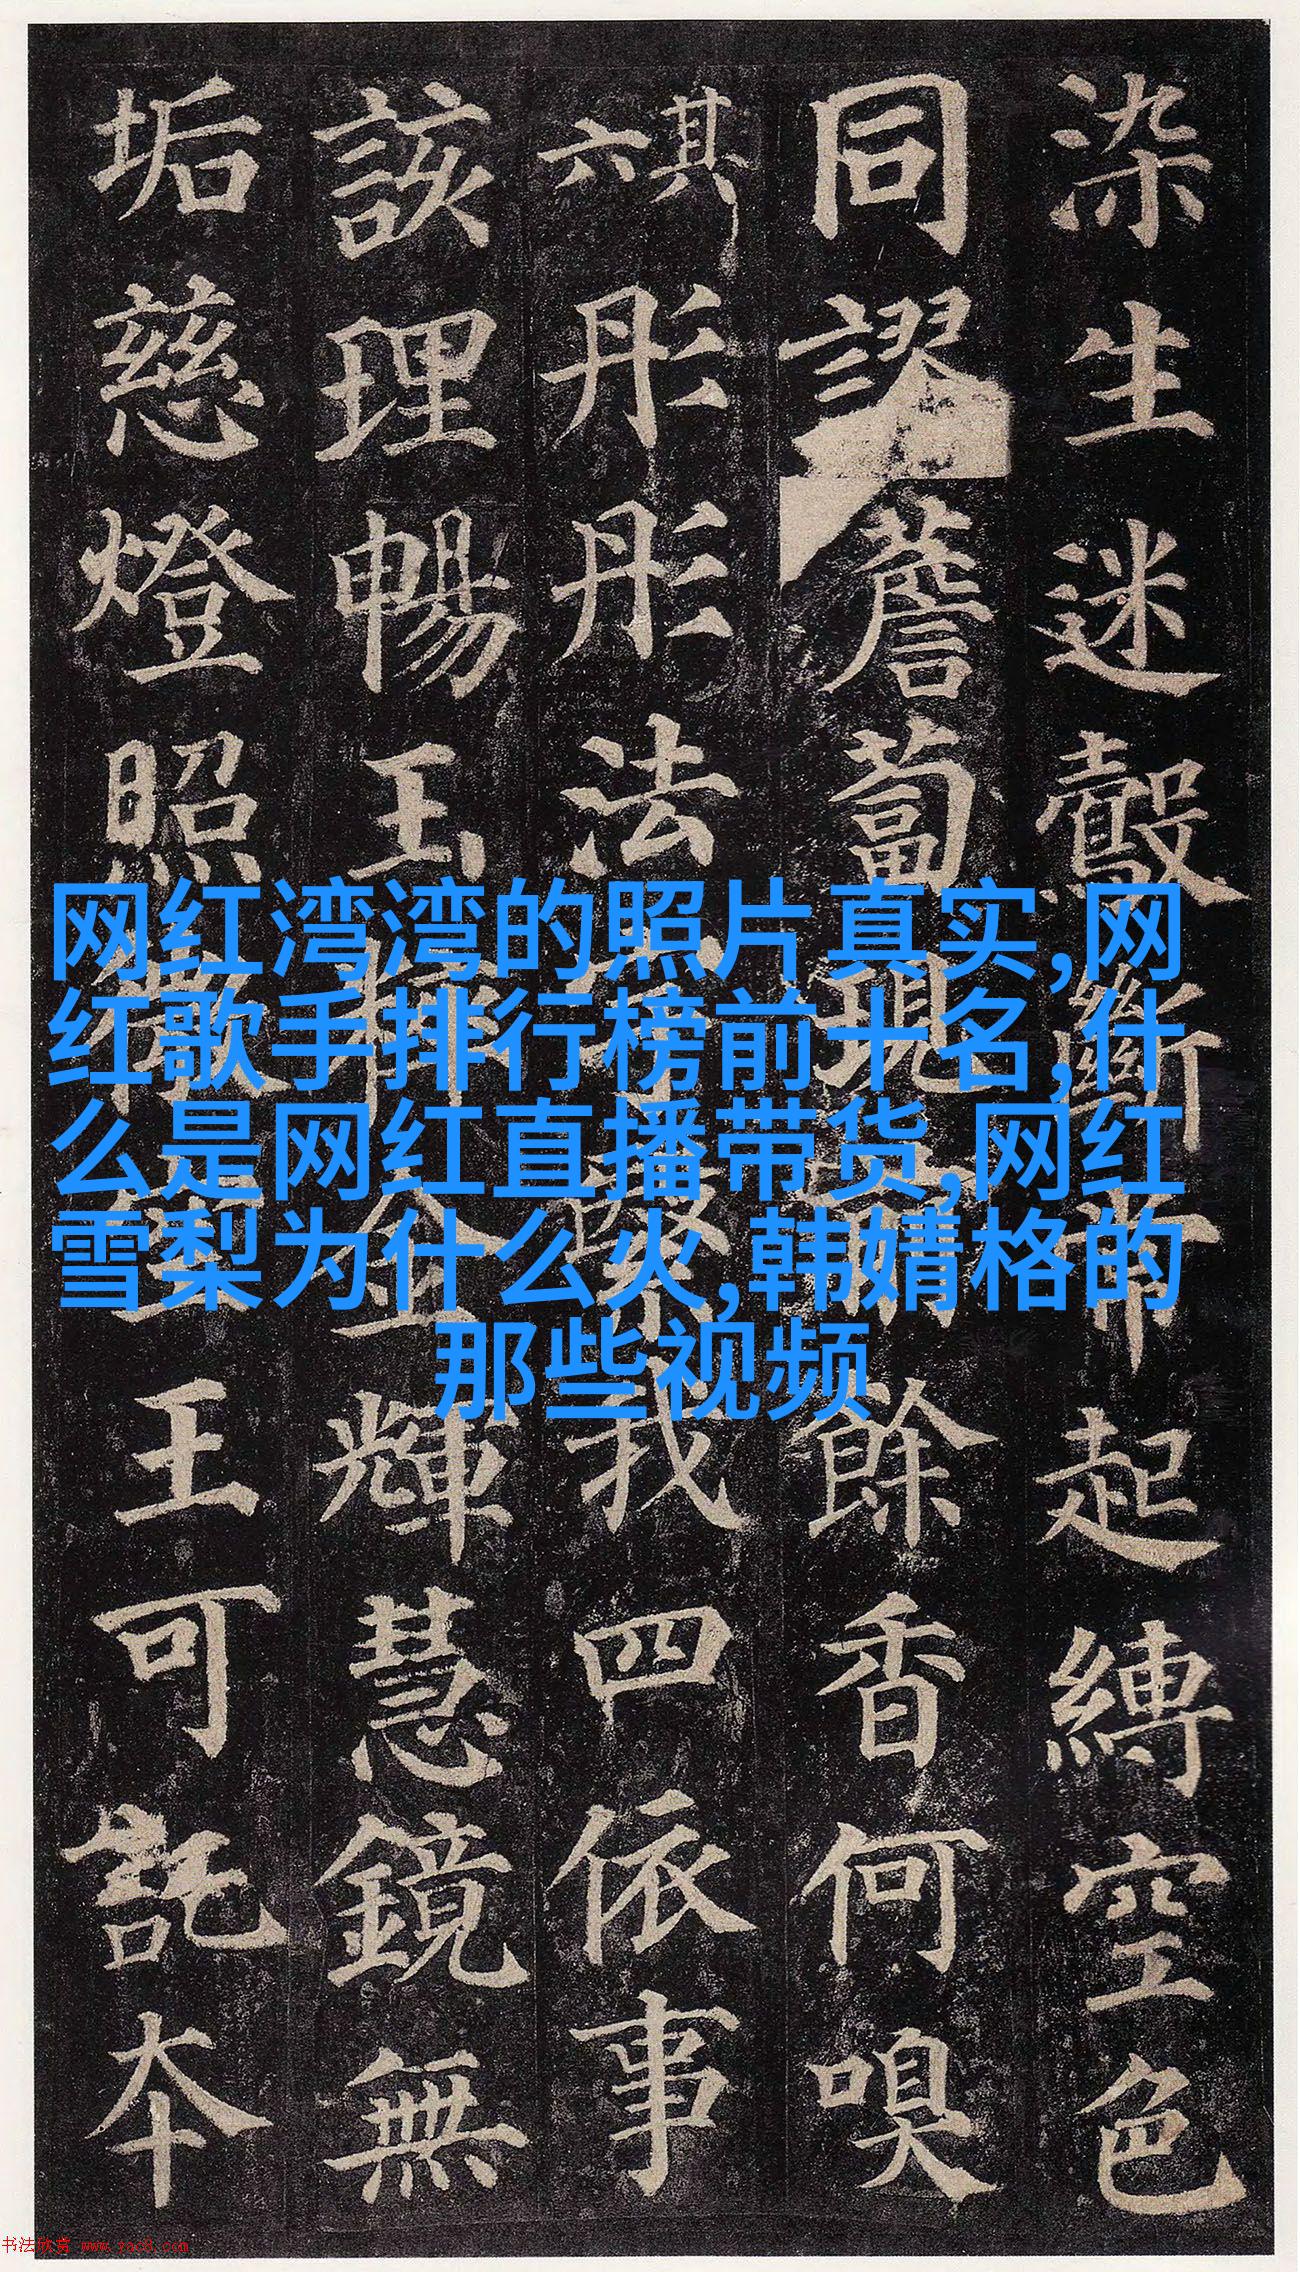 染生迷鷇斷常起縛空色
同謬薝蔔現前餘香何嗅
其六彤彤法宇繄我四依事
該理暢玉粹金輝慧鏡無
垢慈燈照微空王可託本
网红湾湾的照片真实,网
红歌手排行榜前十名,什
么是网红直播带货,网红
雪梨为什么火,韩婧格的
那些视频
书法欣赏 www.yac8.com